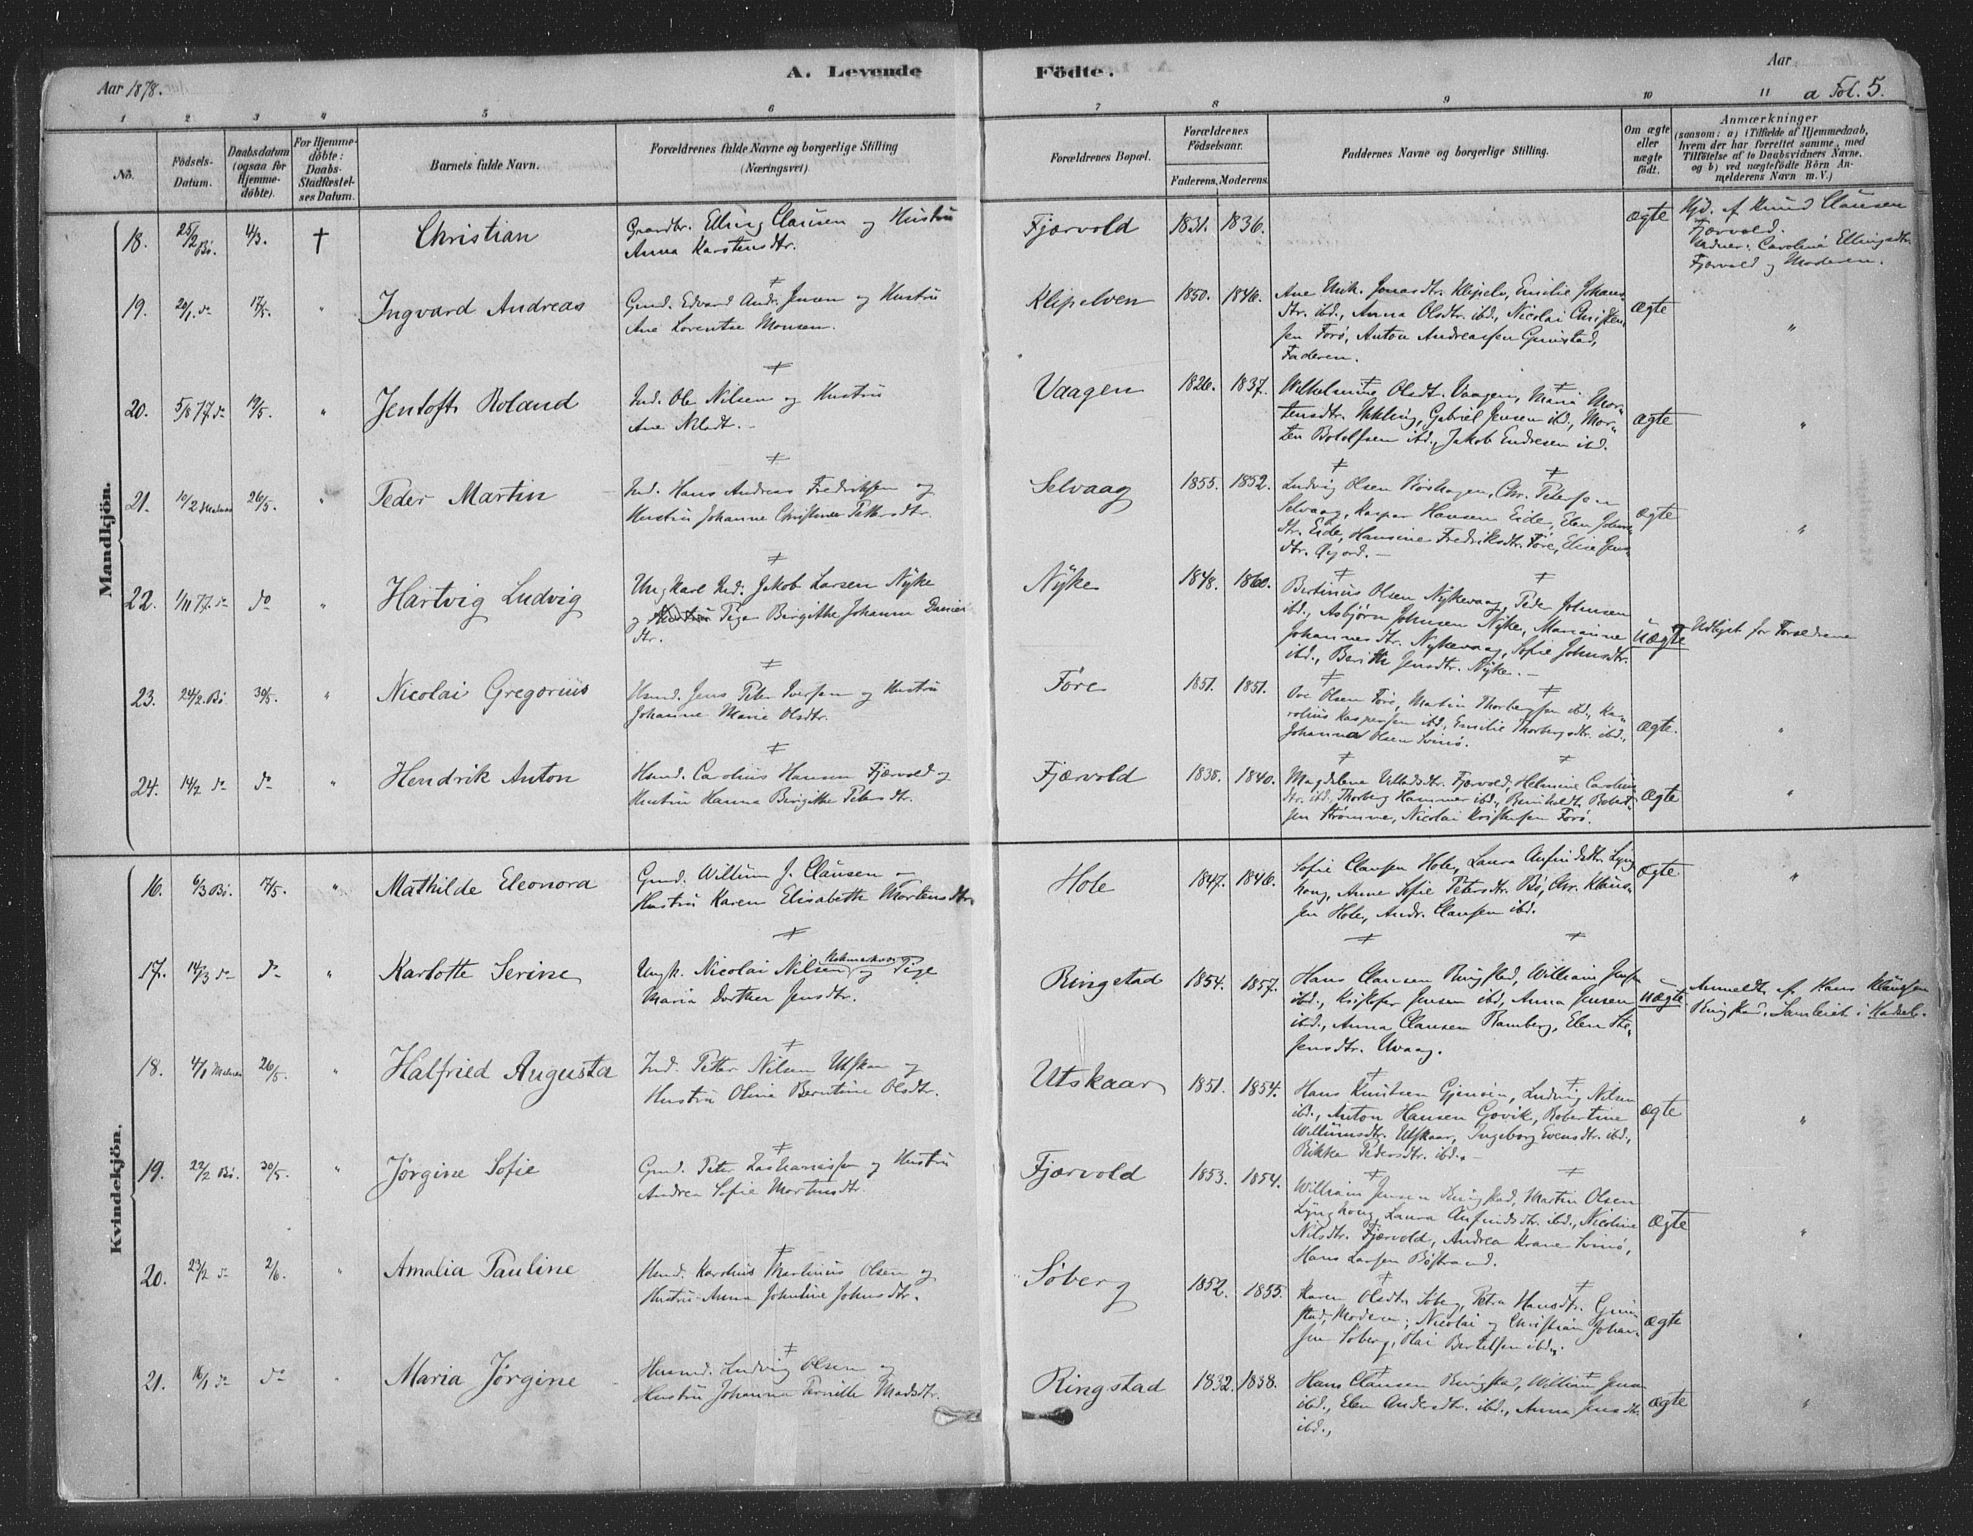 A. Levende Födte.
Aar 1878.
Aar
a Fol. 5.
1 2 3 4 5 6 7 8 9 10 11
No.
Födsels-Datum.
Daabsdatum (ogsaa for Hjemmedöbte).
For Hjemmedöbte: Daabs-Stadfæstelses Datum.
Barnets fulde Navn.
Forældrenes fulde Navne og borgerlige Stilling (Næringsvei)
Forældrenes Bopæl.
Forældrenes Födselsaar.
Faderens. Moderens.
Faddernes Navne og borgerlige Stilling.
Om ægte eller uægte födt.
Anmærkninger
(saasom: a) i Tilfælde af Hjemmedaab, hvem der har forrettet samme, med Tilföielse af to Daabsvidners Navne, og b) ved uægtefödte Börn Anmelderens Navn m. V.)
Mandkjön.
18. 25/2 Bö. 4/3. † Christian
Elling Clausen og Hustru
Anna Karstensdtr.
Fjærvold 1831. 1836. ægte
Hjd. af Knud Clausen
Fjærvold.
Caroline Ellingsdtr.
Fjærvold og Moderen.
19. 20/1 do 17/5. " Ingvard Andreas
Gmd. Edvard Andr. Jensen og Hustru
Ane Lorentse Monsen.
Klipelven 1850. 1846.
Ane Jonasdtr. Klipelv, Emilie Johans
dtr. ibd., Anna Olsdtr. ibd., Nicolai Christen
sen Forö, Anton Andreassen Grimstad,
Faderen.
ægte "
20. 5/8 77 do 19/5. " Jentoft Roland
Ind. Ole Nilsen og Hustru
Ane
Vaagen 1826. 1837.
Wilhelmine Olsdt. Vaagen, Maria Mor
tensdtr. Gabriel Jensen ibd., Mor
ten Botolfsen ibd., Jakob Endresen ibd.
ægte "
21. 10/2 Malnes 26/5. " Peder Martin
Ind. Hans Andreas Fredriksen og
Hustru Johanne Christine Pettersdtr.
Selvaag 1855. 1852.
Ludvig Olsen Chr. Petersen
Selvaag, Kaspar Hansen Eide, Elen Johns
dtr. Eide, Hansine Fredriksdtr. Före, Elise Jens
dtr.
ægte "
22. 1/11 77. do do " Hartvig Ludvig
Ungkarl Ind. Jakob Larsen Nyke
og Hustru Pige Birgithe Johanna Daniels
dtr.
Nyke 1848. 1860.
Bertinius Olsen Nykevaag, Peder Johnsen
ibd., Asbjörn Johnsen Nyke, Marianne
Johannesdtr. Nykevaag, Sofie Johnsdtr.
ibd., Berith Jensdtr. Nyke.
uægte
Udlagt for Forældrene
23. 24/2 Bö 30/5. " Nicolai Gregorius
Hsmd. Jens Peter Iversen og Hustru
Johanne Marie Olsdtr.
Före 1851. 1851.
Ove Olsen Före, Martin Thorbergsen ibd., Ka
rolius Kaspersen ibd., Emilie Thorbergsdtr. ibd.,
Johanna Olsen Svinö.
ægte. "
24. 14/2 do do " Hendrik Anton
Hsmd. Carolius Hansen Fjærvold og
Hustru Hanna Birgithe Petersdtr.
Fjærvold 1838. 1840.
Magdalena Fjærvold, Helmine Carolius
dtr. ibd., Thorberg Hammer ibd., Reinholdt Robert
sen Strömme, Nicolai Kristensen Forö.
ægte "
Kvindekjön.
16. 6/3 Bö. 17/5. " Mathilde Eleonora
Gmd. Willum J. Clausen og
Hustru Karen Elisabeth Mortensdtr.
Hole 1847. 1846.
Sofie Clausen Hole, Laura Anfindsdtr. Lyng
houg, Anne Sofie Petersdtr. Bö, Chr. Klaus
sen Hole, Andr. Clausen ibd.
ægte "
17. 14/3 do do " Karlotte Serine
Ungk. Nicolai Nilsen og Pige
Maria Dorthea Jensdtr.
Ringstad 1854. 1857.
Hans Clausen Ringstad, William Jensen
ibd., Kristofer Jensen ibd., Anna Jensen
ibd., Anna Clausen Ramberg, Elen Ste
fensdtr. Uvaag.
uægte
Anmeldt af Hans Klausen
Ringstad. Samleiet i Hadsel.
18. 4/1 Malnes 26/5. " Halfried Augusta
Ind. Petter Nilsen Utskaar og
Hustru Oline Berntine Olsdtr.
Utskaar 1851. 1854.
Hans Knutsen Gjenöen, Ludvig Nilsen
ibd., Anton Hansen Govik, Robertine
Willumsdtr. Utskaar, Ingeborg Evensdtr. ibd.,
Rikke Pedersdtr. ibd.
ægte "
19. 22/2 Bö. 30/5. " Jörgine Sofie
Gmd. Peter Zachariassen og Hustru
Andrea Sofie Martinsdtr.
Fjærvold 1853. 1854.
William Jensen Ringstad, Martin Olsen
Lynghoug, Laura Anfindsdtr. ibd., Nicoline
Nilsdtr. Fjærvold, Andrea Krane Svinö,
Hans Larsen Böstrand.
ægte "
20. 23/2 do 2/6. " Amalia Pauline
Hsmd. Karolius Martinus Olsen og
Hustru Anna Johnsdtr.
Söberg 1852. 1855.
Karen Olsdtr. Söberg, Petra Hansdtr. Grim
stad, Moderen, Nicolai og Christian Johan
sen Söberg, Olai Bertelsen ibd.
ægte "
21. 16/1 do do " Maria Jörgine
Husmd. Ludvig Olsen og
Hustru Johanna Pernille Madsdtr.
Ringstad 1832. 1838.
Hans Clausen Ringstad, William Jensen
ibd., Elen Andersdtr. ibd., Anna Jensdtr.
ibd.,
ægte "